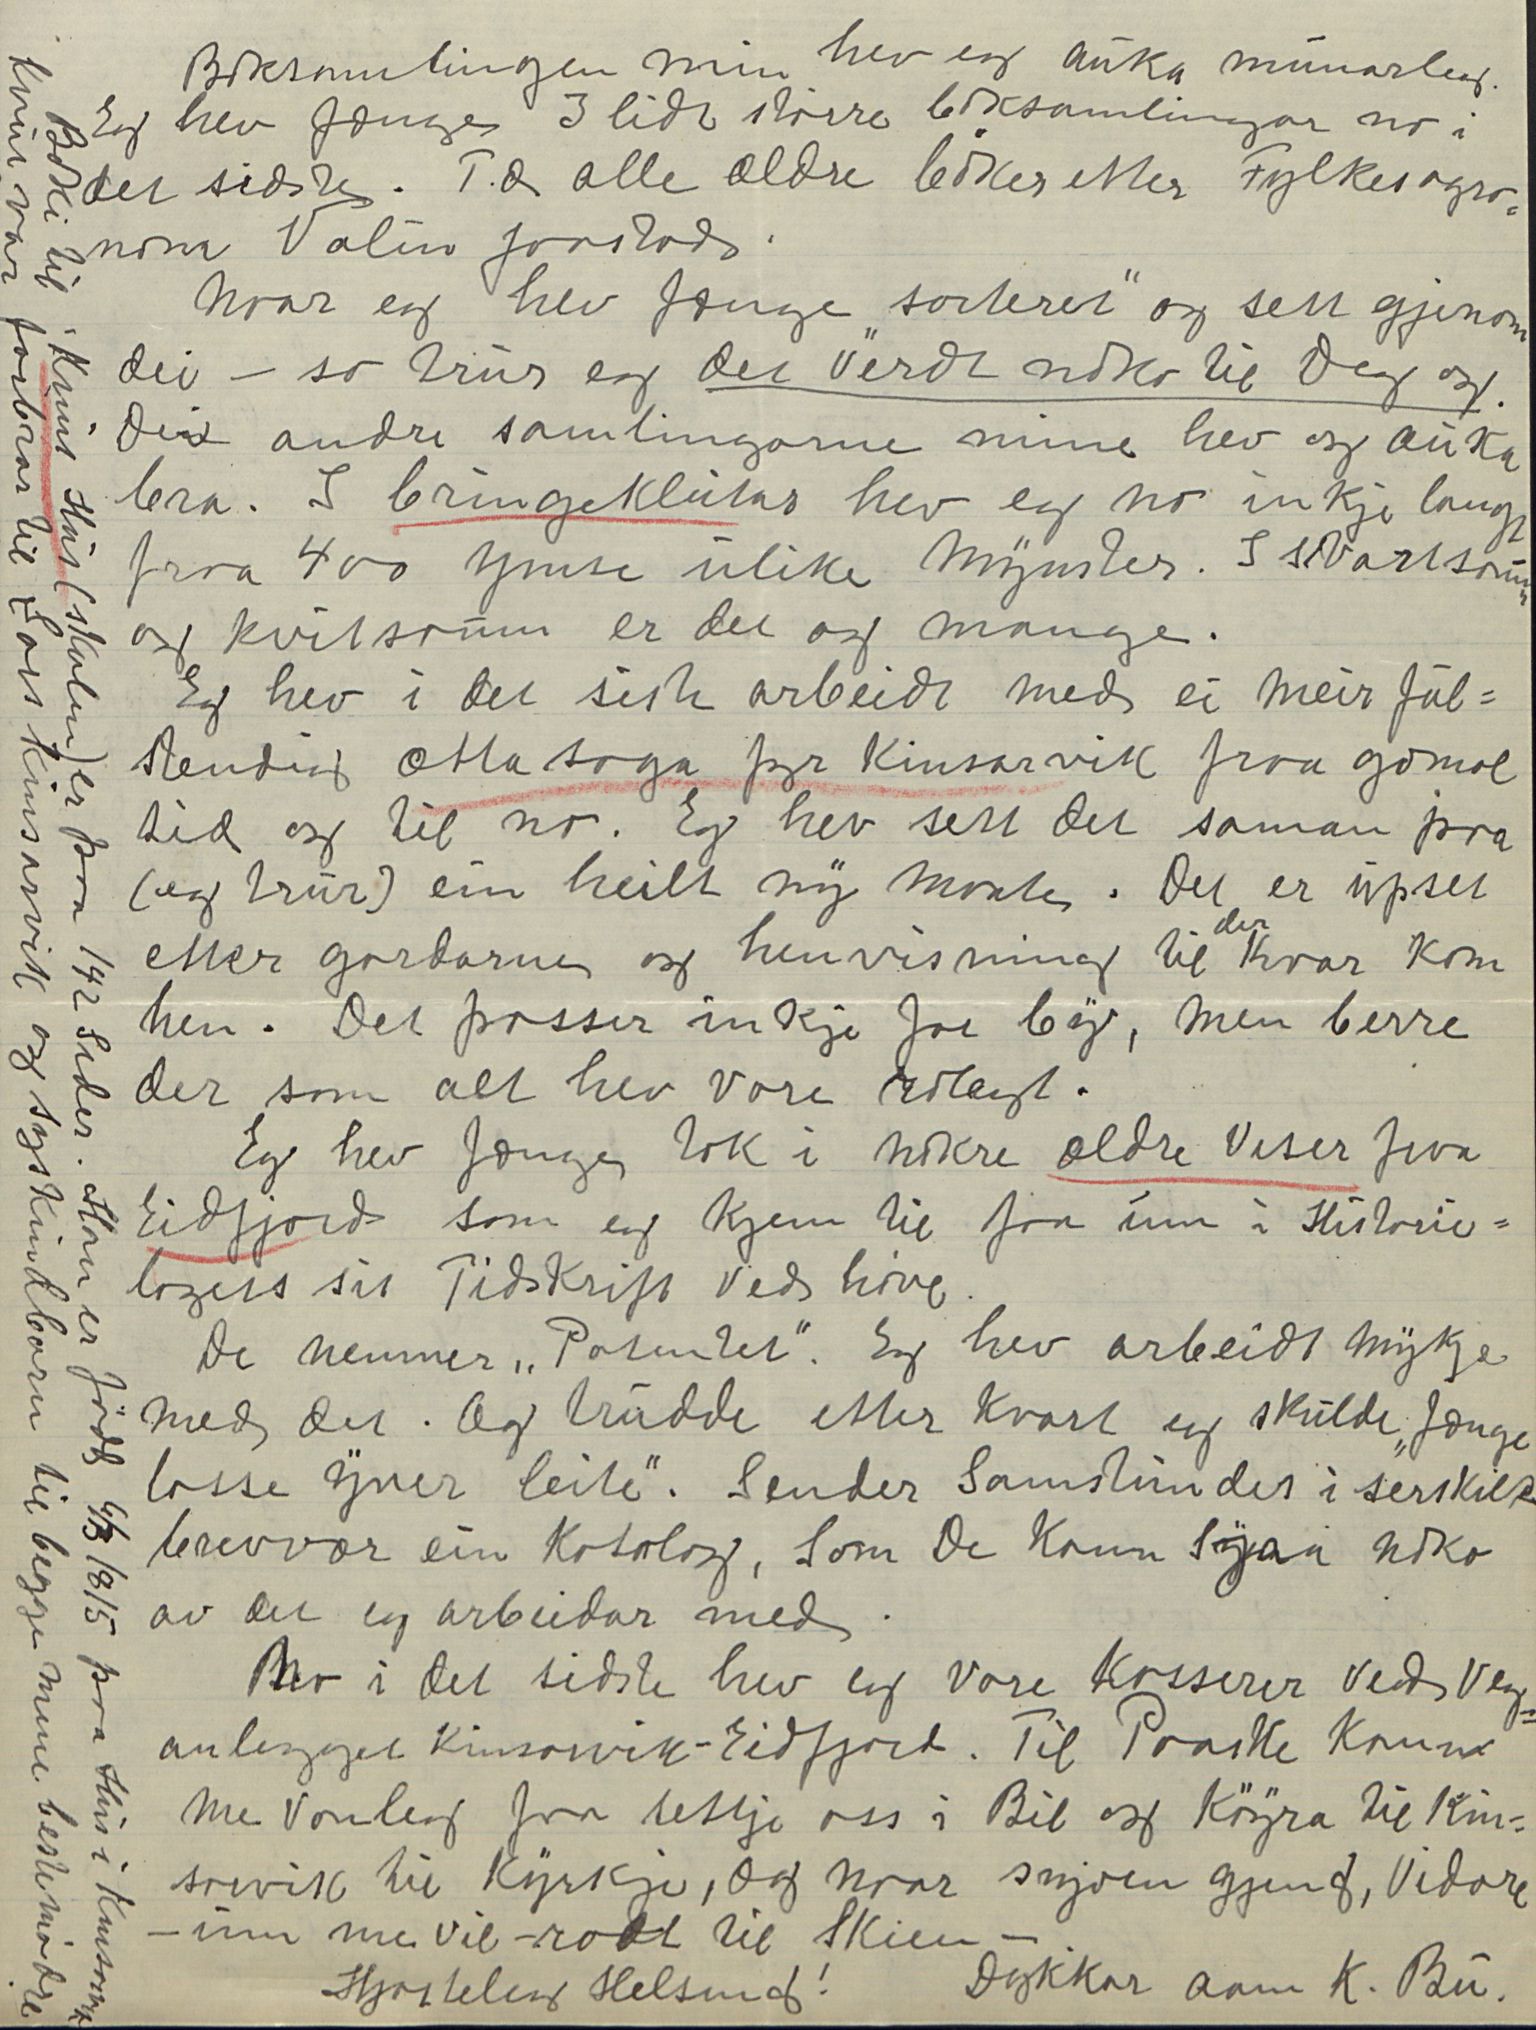 Boksamlingen min hev eg auka munarleg.
Eg hev fenge 3 lidt större boksamlingar no i
det sidste. T.d. alle ældre böker etter Fylkesagro=
nom Valün
Naar eg hev fenge "sorteret" og sett gjenom
dei - so trur eg det verdt noko til Deg og.
Dei andre samlingarne mine hev og auka
bra. I bringeklutar hev eg no inkje langt
fraa 400 ymse ulike Mynster. I Svartsaum
og kvitsaum er det og mange.
Eg hev i det siste arbeidt med ei meir ful=
stendig ættasoga fyr Kinsarvik fraa gomol
tid og til no. Eg hev sett det saman paa
(eg trur) ein heilt ny maate. Det er upset
etter gardarne og henvisning til der kvar kom
hen. Det passer inkje for by, men berre
der som alt hev vore rolegt.
Eg hev fenge tak i nokre ældre viser fraa
Eidfjord som eg kjem til faa inn i Historie=
lagets sit Tidskrift ved höve.
De nemner "Patentet". Eg hev arbeidt mykje
med det. Og trudde etter kvart eg skulde "fenge
lasse yver leite". Sender Samstundes i serskilt
brevvar ein Katalog, som De kann syaa noko
av det eg arbeidar med.
No i det sidste hev eg vore Kasserer ved Veg=
anlegget Kinsarvik-Eidfjord. Til Paaske kann
me vonleg faa settje oss i Bil og köyra til Kin=
sarvik til Kyrkje, og naar snjoen gjeng, vidare
- um me vil - radt til Skien -
Hjarteleg Helsing! Dykkar aam K. Bu.
Boki til Knut Hus (skolen) er paa 142 Sider. Han er född 6/3 1815 paa Hus i Kinsarvik
Knut var farbror til Lars Kinsarvik og syskindbarn til begge mine bestemödre.